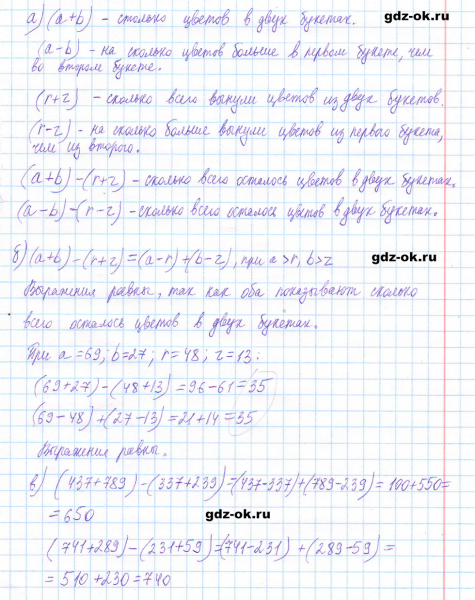 gdz-ok.ru
а) (a+b) - столько цветов в двух букетах.
(a-b) - на сколько цветов больше в первом букете, чем
во втором букете.
(r+z) - сколько всего вынули цветов из двух букетов.
(r-z) - на сколько больше вынули цветов из первого букета,
чем из второго.
(a+b)-(r+z) - сколько всего осталось цветов в двух букетах.
(a-b)-(r-z) - сколько всего осталось цветов в двух букетах.
б) (a+b)-(r+z)=(a-r)+(b-z), при a>r, b>z
gdz-ok.ru
Выражения равны, так как оба показывают сколько
всего осталось цветов в двух букетах.
При a=69; b=27; r=48; z=13:
(69+27)-(48+13)=96-61=35
(69-48)+(27-13)=21+14=35
Выражения равны.
в) (437+789)-(337+239)=(437-337)+(789-239)=100+550=
=650
gdz-ok.ru
(741+289)-(231+59)=(741-231)+(289-59)=
=510+230=740